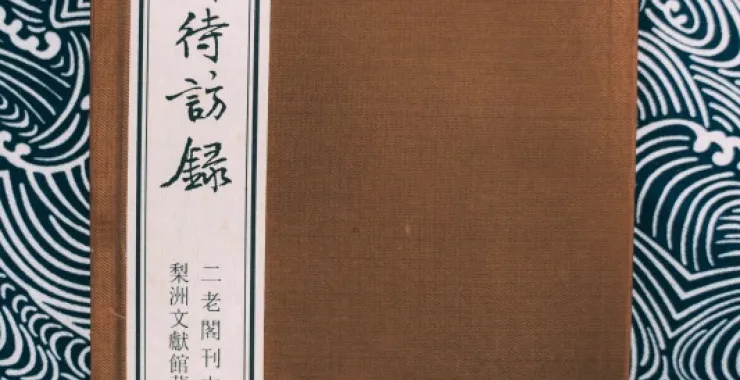 待訪録
二老閣刊
梨洲文獻館